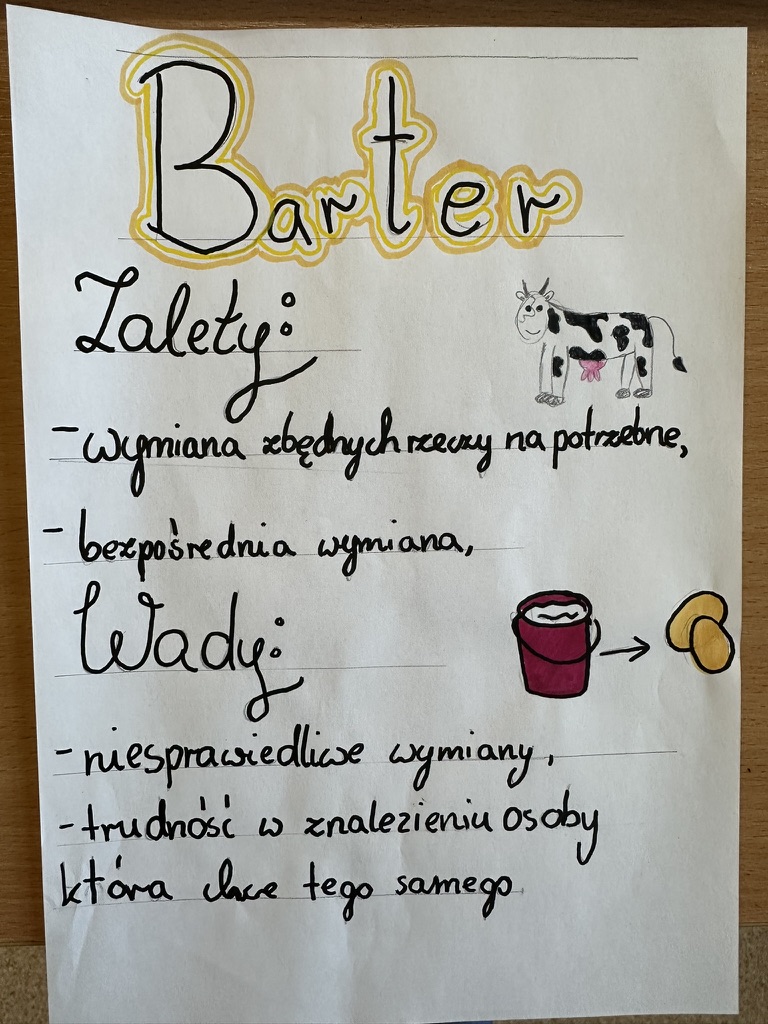 Barter
Zalety:
- wymiana zbędnych rzeczy na potrzebne,
- bezpośrednia wymiana,
Wady:
- niesprawiedliwe wymiany,
- trudność w znalezieniu osoby
która chce tego samego